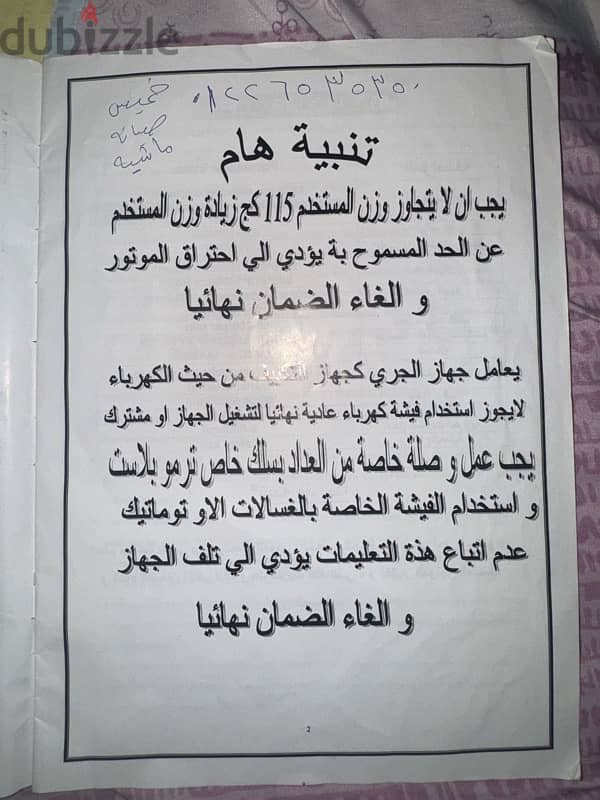 dubizzle
خميس
صيانة
ماشيه
٠١٢٢٦٥٣٥٣٥٠
تنبية هام
يجب ان لا يتجاوز وزن المستخدم 115 كج زيادة وزن المستخدم
عن الحد المسموح بة يؤدي الي احتراق الموتور
و الغاء الضمان نهائيا
يعامل جهاز الجري كجهاز التكييف من حيث الكهرباء
لايجوز استخدام فيشة كهرباء عادية نهائيا لتشغيل الجهاز او مشترك
يجب عمل و صلة خاصة من العداد بسلك خاص ترمو بلاست
و استخدام الفيشة الخاصة بالغسالات الاو توماتيك
عدم اتباع هذة التعليمات يؤدي الي تلف الجهاز
و الغاء الضمان نهائيا
2